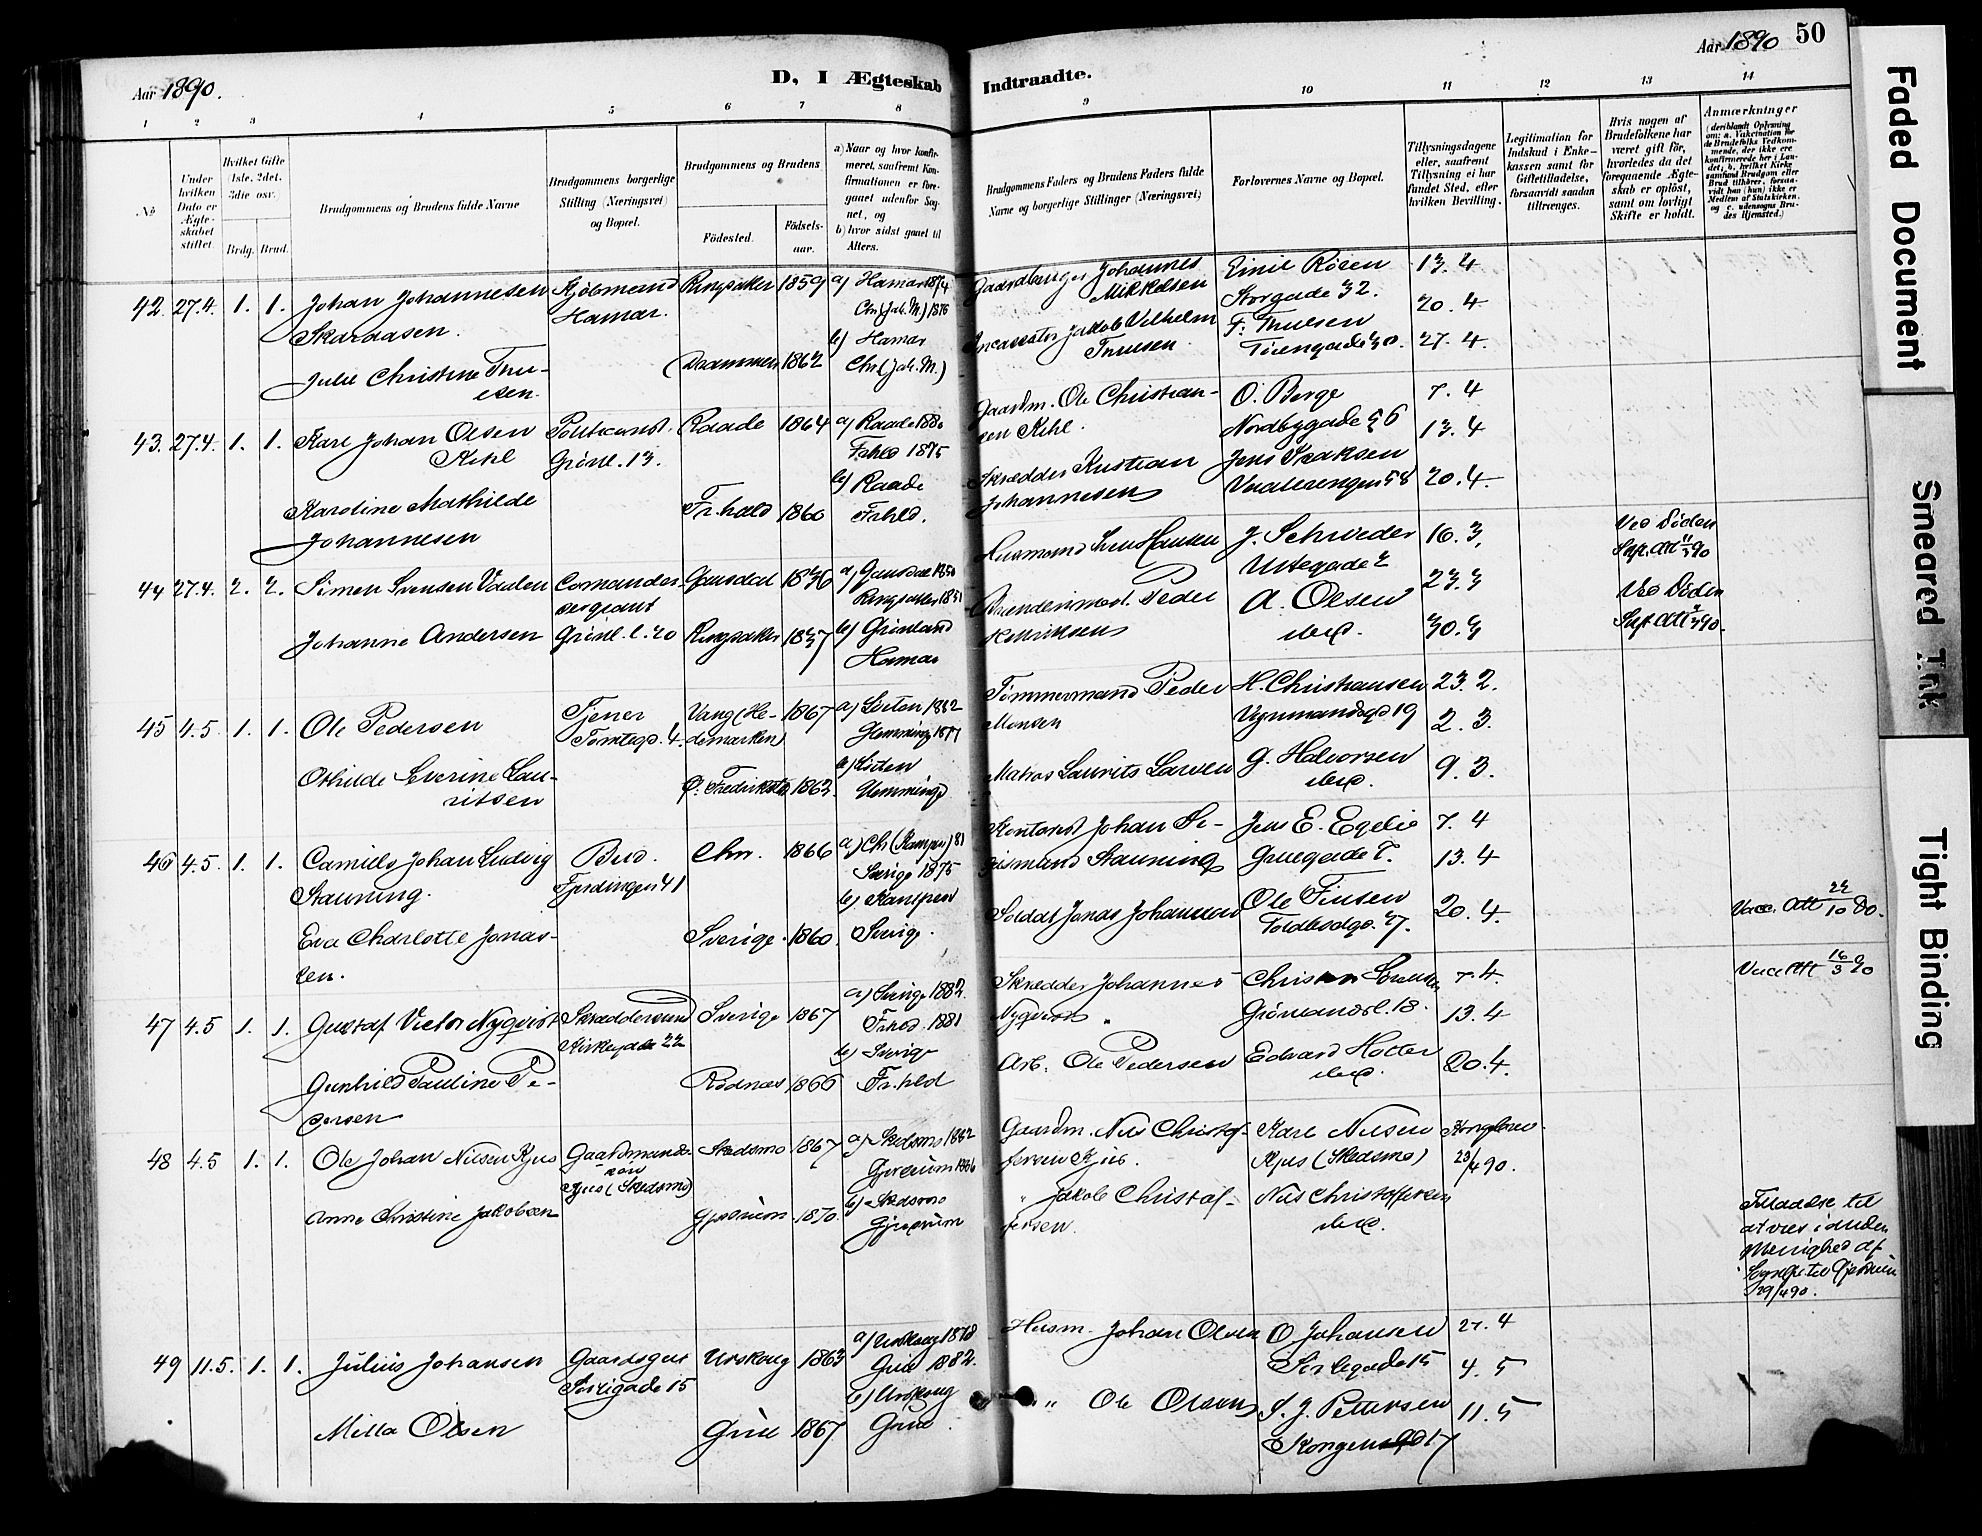 Aar 1890.
D, I Ægteskab
Indtraadte.
Aar 1890 50
1 2 3 4 5 6 7 8 9 10 11 12 13 14
No
Under hvilken Dato er Ægteskabet stiftet.
Hvilket Gifte 1ste, 2det, 3die osv.
Brdg. Brud.
Brudgommens og Brudens fulde Navne
Brudgommens borgerlige Stilling (Næringsvei) og Bopæl.
Brudgommens og Brudens
Fødested.
Fødsels-aar.
a) Naar og hvor konfirmeret, saafremt Konfirmationen er foregaaet udenfor Sognet, og
b) hvor sidst gaaet til Alters.
Brudgommens Faders og Brudens Faders fulde Navne og borgerlige Stillinger (Næringsvei)
Forlovernes Navne og Bopæl.
Tillysningsdagene eller, saafremt Tillysning ei har fundet Sted, efter hvilken Bevilling.
Legitimation for Indskud i Enkekassen samt for Giftetilladelse, forsaavidt saadan tiltrænges.
Hvis nogen af Brudefolkene har været gift før, hvorledes da det foregaaende Ægteskab er opløst, samt om lovligt Skifte er holdt.
Anmærkninger
42. 27.4. 1. 1. Johan Johannesen Kjøbmand Ringsaker 1859 a) Hamar 1874
Skaraasen. Hamar. Chr (Jak. M.) 1876
b) Hamar
Julie Christine Thu- Drammen 1862 Chr (Jak. M.)
esen.
Gaardbruger Johannes Mikkelsen
Jakob Vilhelm Thuesen
Emil Rosen
Storgade 32.
F. Thuesen
Tøiengade 30.
13.4
20.4
27.4
43. 27.4. 1. 1. Karl Johan Olsen Politiconst. Raade 1864 a) Raade 1880
Kihl Grønl. 13. Frhld 1875
b) Raade
Karoline Mathilde Fr.hald 1860 Frhld.
Johannesen
Gaardm. Ole Christian-
sen Kihl.
Skrædder Kristian
Johannesen
O. Berge
Nordbygade 56
Jens Isaksen
Vaalerengen 58
7.4
13.4
20.4
44 27.4. 2. 2. Simen Svensen Vaalen Comander Gausdal 1836 a) Gausdal 1850
sergeant Ringsaker 1851
Johanne Andersen Grønl. l. 20 Ringsaker 1837 b) Grønland
Hamar
Husmand Sven Hansen
Peder
Henriksen
J. Schrøder
Urtegade 2
A. Olsen
ibid.
16.3.
23.3
30.3
Ved Døden
Skft. Att 11/3 90
Ved Døden
45 4.5. 1. 1. Ole Pedersen Tjener Vang (He- 1867 a) Løiten 1882
Tomtegd. 4. demarken) Glemminge 1877
b) Løiten
Othilde Severine Lau- Ø. Fredrikstad 1862. Glemminge
ritsen
Tømmermand Peder
Monsen
Matros Laurits Larsen
H. Christiansen
Vognmandsgd 19
G. Halvorsen
ibid.
23.2.
2.3.
9.3.
46 4.5. 1. 1. Camillo Johan Ludvig Bud. Chr. 1866 a) Ch (Kampen) 81
Stauning. Fjerdingen 41 Sverige 1875
b) Kampen
Eva Charlotte Jonas- Sverige. 1860. Sverig.
sen.
Kontorist Johan Si-
gismund Stauning
Soldat Jonas Johansson
Jens E. Egelie
Gruegade 7.
Ole Finsen
Toldbodgd. 7.
7.4
13.4
20.4
Vacc. Att 22/10 80.
47 4.5 1. 1. Gustaf Victor Nyqvist Skræddersvend Sverige 1867 a) Sverige 1882
Kirkegade 22 Frhld. 1881
b) Sverige
Gunhild Pauline Pe- Rødnæs 1866 Fr.hld
dersen
Skrædder Johannes
Nyqvist
Arb. Ole Pedersen
Christen
Grønlandsl. 18.
Edvard Holter
ibid.
7.4
13.4
20.4.
Vacc Att 16/3 90
48 4.5 1. 1. Ole Johan Nilsen Kjus Gaardmands- Skedsmo 1867 a) Skedsmo 1882
søn Gjerdrum 1886
Kjus (Skedsmo) b) Skedsmo
Anne Christine Jakobsen Gjerdrum 1870. Gjerdrum
Gaardm. Nils Christof-
fersen Kjus.
" Jakob Christof-
fersen.
Karl Nilsen
Kjus (Skedsmo)
Nils Christoffersen
ibid.
Kongebrev
23/4 90.
Tilladelse til
at vies i anden
Menighed af
Sogneprt til Gjerdrum
29/4 90.
49 11.5. 1. 1. Julius Johansen Gaardsgut Urskoug 1863 a) Urskoug 1878
Sorligade 15 Grue 1882.
b) Urskoug
Milla Olsen Grue 1867 Grue.
Husm. Johan Olsen
" Ole Olsen
O Johansen
Sorligade 15
S. J. Pettersen
Kongensgd 17
27.4
4.5
11.5
Faded Document
Smeared Ink
Tight Binding